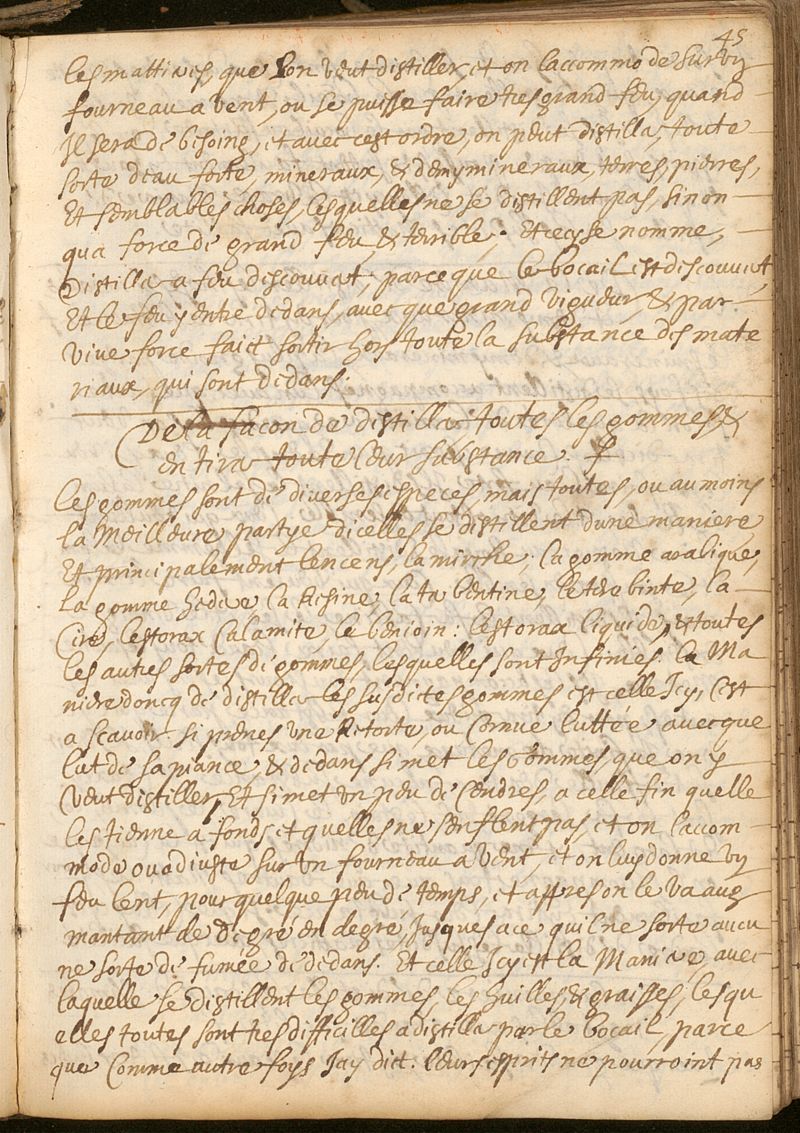 45
les mattieres, que Lon veut distiller, et on laccommode sur vn
fourneau a vent, ou se puisse faire tres grand feu, quand
Il sera de besoing, et avec cest ordre, on peut distiller, toute
sorte deau forte, mineraux, & demy mineraux, terres, pierres,
Et semblables choses, lesquelles ne se distillent pas, sinon
qua force de grand feu, & terrible; Et cecy se nomme,
Distiller a feu descouvert, parce que le bocail est descouvert
Et le feu y entre dedans, avecque grand vigueur, & par
vive force faict sortir hors toute la substance des mate
riaux, qui sont dedans.
De la facon de distiller toutes les gommes &
en tirer toute leur substance.
Les gommes sont de diverses especes, mais toutes, ou au moins
la Meilleure partye dicelles se distillent dune maniere
Et principalement lencens, la mirrhe, la gomme arabique,
la gomme hedere la Resine, la terbentine, le terebinte, la
Cire, lestorax Calamite, le benioin: lestorax liquide, & toutes
les autres sortes de gommes, lesquelles sont Infinies. la Ma
niere doncq de distiller les susdictes gommes est celle Icy, Cest
a scavoir si prenes une Retorte, ou Cornue luttée avecque
lut de sapiance, & dedans si met les Gommes que on y
Veut distiller, Et si met un peu de Cendres, a celle fin quelle
les tienne a fonds et quelles ne senflent pas, et on laccom
mode ou adiuste sur un fourneau a vent, et on luy donne vn
feu lent, pour quelque peu de temps, et appres on le va aug
mantant de degré en degré, Jusques a ce quil ne sorte aucu
ne sorte de fumée de dedans. Et celle Icy est la Maniere, avec
laquelle se distillent les gommes, les huilles & graisses, lesqu
elles toutes sont tres difficilles a distiller par le bocail, parce
que Comme autre foys Jay dict. leurs esprits ne pourroint pas